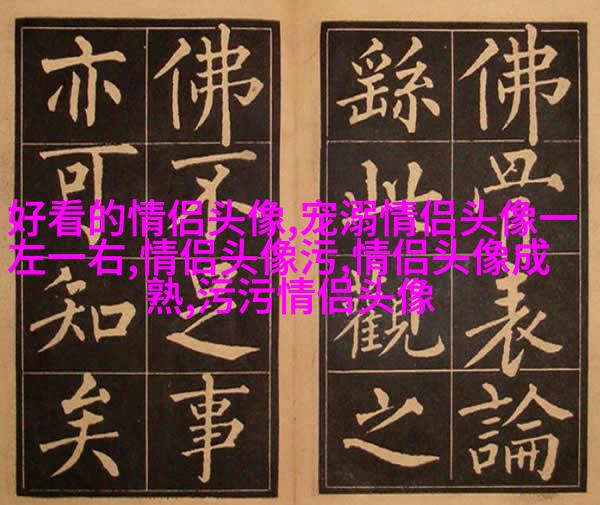 佛骨表論
繇此觀之
佛不足事
亦可知矣
好看的情侣头像,宠溺情侣头像一
左一右,情侣头像污,情侣头像成
熟,污污情侣头像